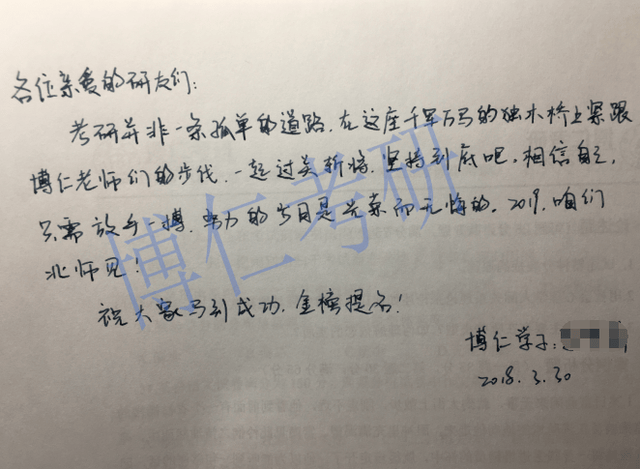 各位亲爱的研友们:
考研并非一条孤单的道路,在这座千军万马的独木桥上紧跟
博仁老师们的步伐,一起过关斩将,坚持到底吧,相信自己,
只需放手一搏,努力的岁月是光荣而无悔的。2019,咱们
北师见!
祝大家马到成功,金榜提名!
博仁学子:
2018.3.30
博仁考研